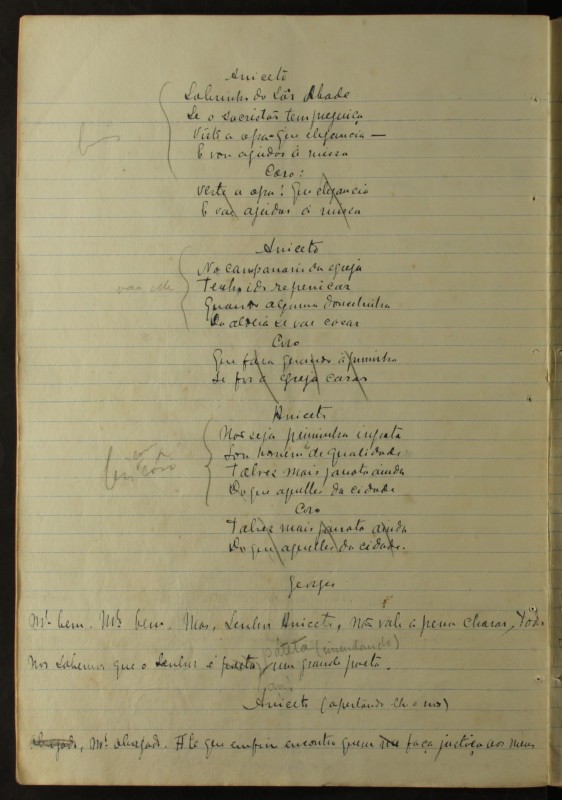 Aniceto
Sobrinho do Sôr Abade
Se o sacristão tem preguiça
Viste a opa - que elegancia —
E vou ajudar á missa
bis
Coro:
Veste a opa! Que elegancia
E vae ajudar á missa
Aniceto
No campanario da egreja
Tenho ido repenicar
Quando alguma donzelinha
Da aldeia se vae casar
Coro
Que fará quando a priminha
Se fôr á egreja casar
Aniceto
Não seja priminha ingrata
Sou homem de qualidade
Talvez mais janota ainda
Do que aquelles da cidade
Coro
Talvez mais janota ainda
Do que aquelles da cidade.
Georges
Mto bem. Mto bem. Mas, Senhor Aniceto, não vale a pena chorar, Todos
pateta (emendando)
nos sabemos que o Senhor é um grande poeta.
Aniceto (apertando-lhe a mão)
obrigado, Mto obrigado. Até que emfim encontro quem faça justiça aos meus